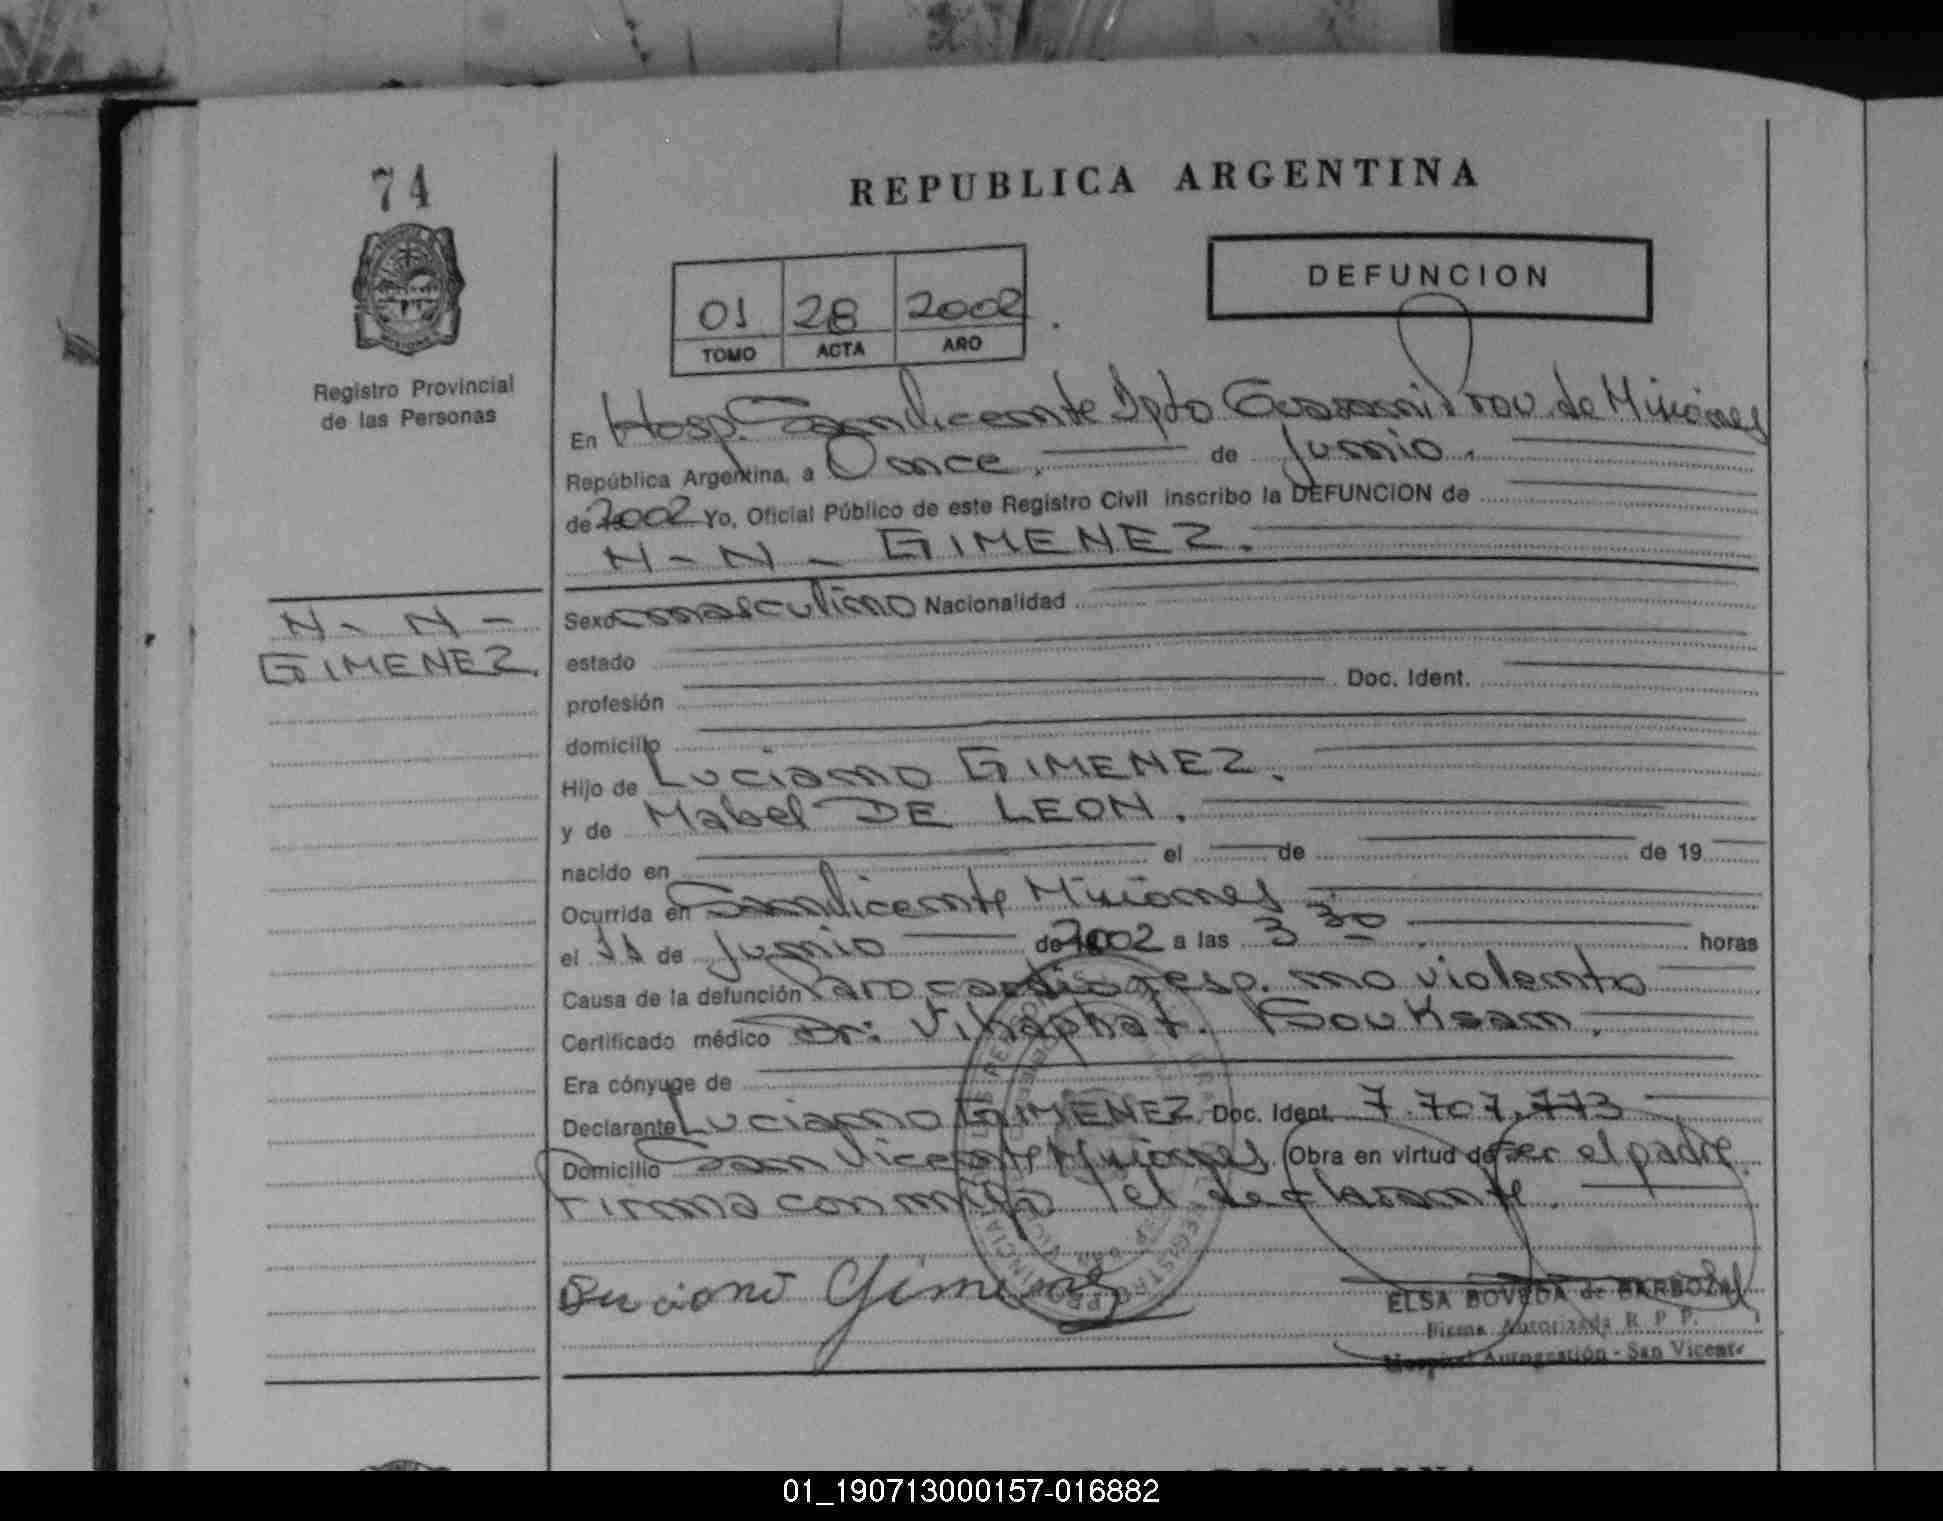 74
REPUBLICA ARGENTINA
DEFUNCION
01 28 2002
TOMO ACTA AÑO
Registro Provincial
de las Personas
En Hosp. San Vicente Dpto Guarani Prov. de Misiones
República Argentina, a Once. de Junio.
de 2002 Yo, Oficial Público de este Registro Civil inscribo la DEFUNCION de
N - N - GIMENEZ.
N - N -
GIMENEZ.
Sexo masculino Nacionalidad
estado
profesión Doc. Ident.
domicilio
Hijo de Luciano GIMENEZ.
y de Mabel DE LEON.
nacido en el de de 19
Ocurrida en San Vicente Misiones
el 11 de Junio de 2002 a las 3 30 horas
Causa de la defunción Paro cardio resp. no violento
Certificado médico Dr: Vihaphat. Bouksam.
Era cónyuge de
Declarante Luciano GIMENEZ Doc. Ident. 7.707.773
Domicilio San Vicente Misiones. Obra en virtud de ser el padre.
Firma conmigo el declarante.
Luciano Gimenez
ELSA BOVEDA de BARBOZA
Firma Autorizada R. P. P.
Hospital Autogestión - San Vicente
01_190713000157-016882